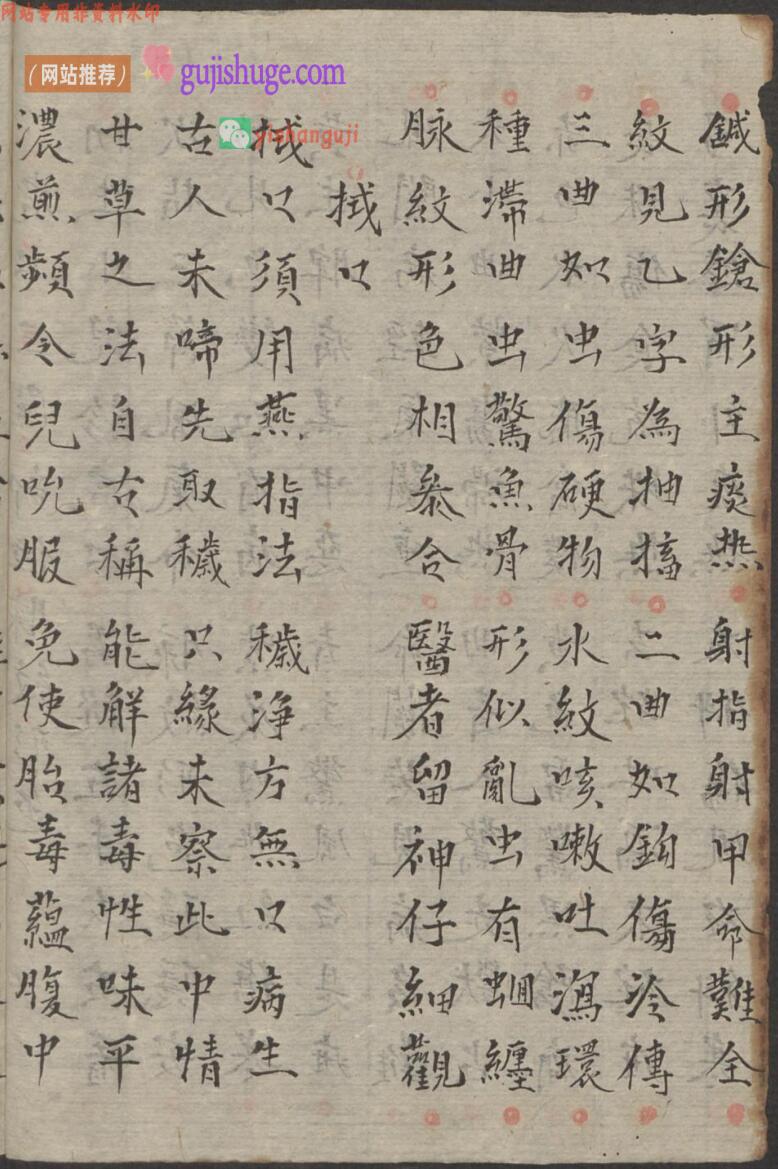 网站专用非资料水印
(网站推荐)
gujishuge.com
yishanguji
鍼形鎗形主痰热 射指射甲命難全
紋見乙字為抽搐 二曲如鈎傷冷傳
三曲如虫傷硬物 水紋咳嗽吐瀉環
種滯曲虫驚魚骨 形似亂虫有蛔纏
脉紋形色相叅合 醫者留神仔細觀
拭口
拭口須用燕指法 穢净方無口病生
古人未啼先取穢 只緣未察此中情
甘草之法自古稱 能解諸毒性味平
濃煎頻令兒吮服 免使胎毒蘊腹中